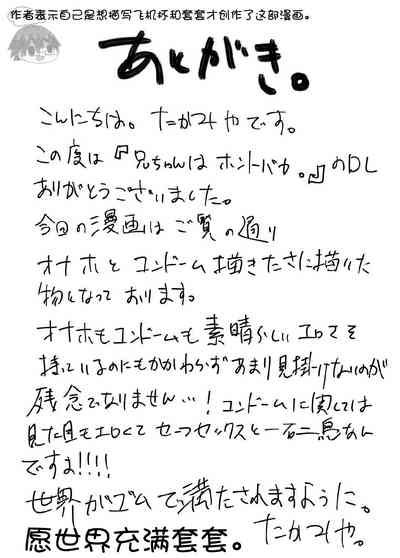 作者表示自己是想描写飞机杯和套套才创作了这部漫画。
あとがき。
こんにちは。たかみやです。
この度は『兄ちゃんはホントバカ。』のDL
ありがとうございました。
今回の漫画はご覧の通り
オナホとコンドーム描きたさに描いた
物となっております。
オナホもコンドームも素晴らしいエロさを
持っているのにもかかわらずあまり見掛けないのが
残念でなりません…!コンドームに関しては
見た目もエロくてセーフセックスと一石二鳥なん
ですよ!!!!
世界がゴムで満たされますように。
愿世界充满套套。
たかみや。